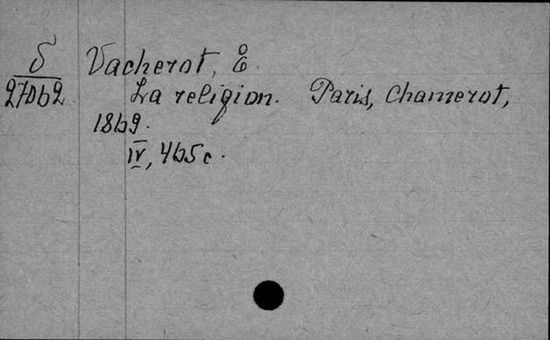 б Vacherot, É.
27062. La religion. Paris, Chamerot,
1869.
IV, 465 c.